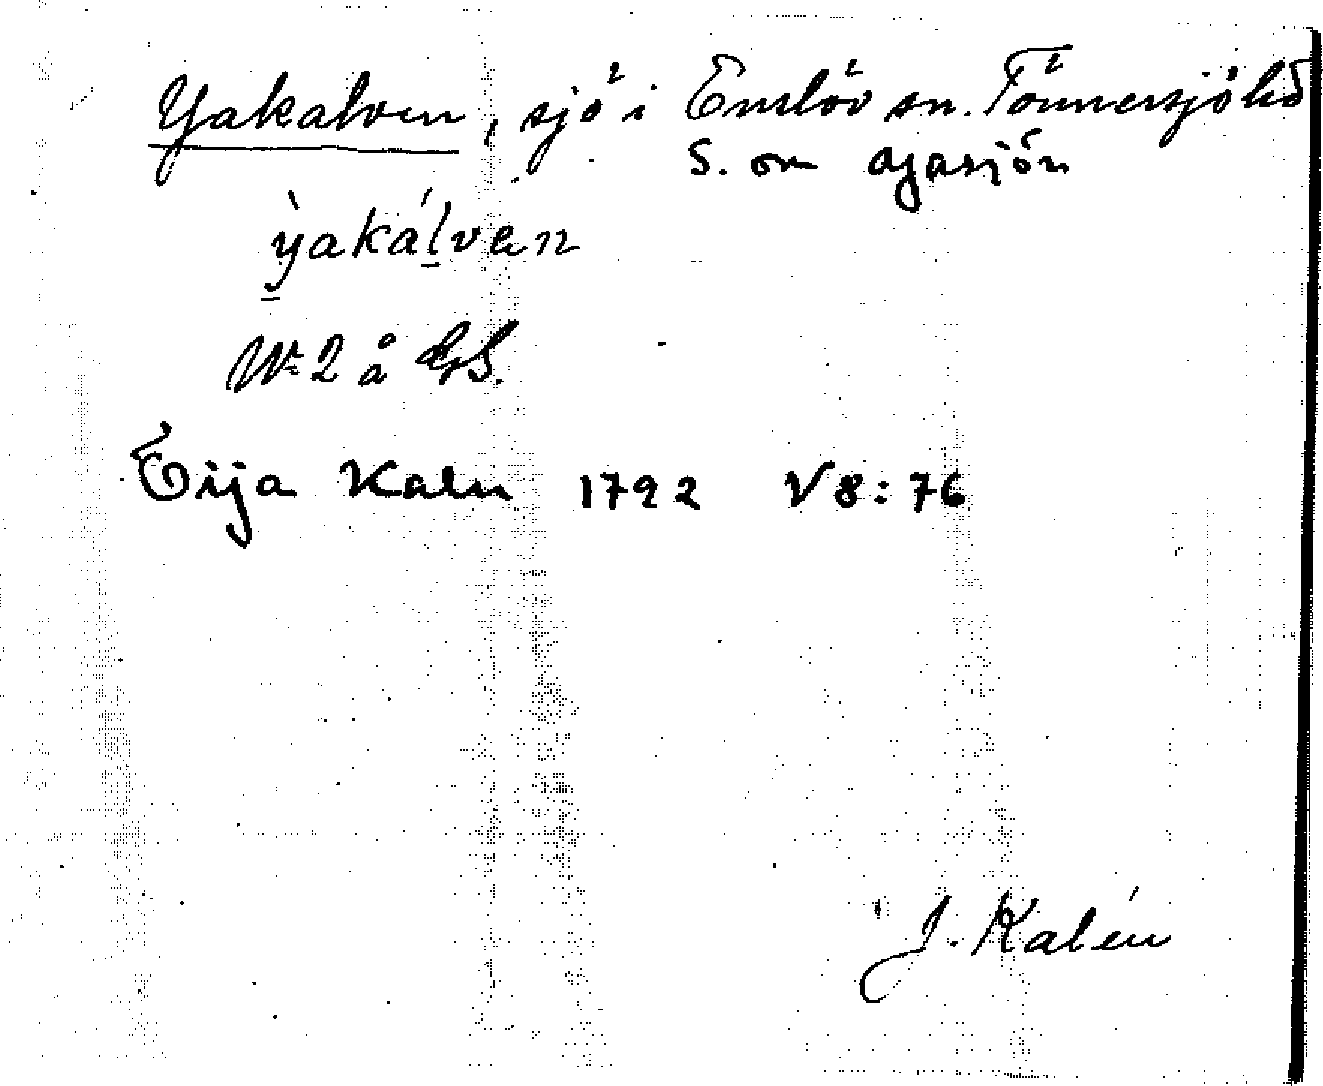 Yakalven, sjö i Enslöv sn. Tönnersjö hd
S. om Gyasjön
yakálven
N:2 å GS.
Eija Kalu 1792 V8:76
J. Kalén